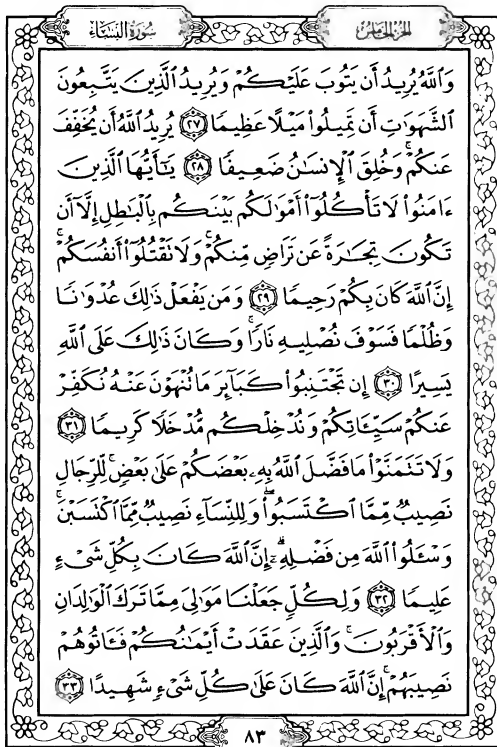 سُورَةُ النِّسَاءِ
الجُزءُ الخَامِسُ
وَاللَّهُ يُرِيدُ أَن يَتُوبَ عَلَيْكُمْ وَيُرِيدُ الَّذِينَ يَتَّبِعُونَ
الشَّهَوَاتِ أَن تَمِيلُوا۟ مَيْلًا عَظِيمًا ﴿٢٧﴾ يُرِيدُ اللَّهُ أَن يُخَفِّفَ
عَنكُمْ ۚ وَخُلِقَ الْإِنسَٰنُ ضَعِيفًا ﴿٢٨﴾ يَٰٓأَيُّهَا الَّذِينَ
ءَامَنُوا۟ لَا تَأْكُلُوٓا۟ أَمْوَٰلَكُم بَيْنَكُم بِالْبَٰطِلِ إِلَّآ أَن
تَكُونَ تِجَٰرَةً عَن تَرَاضٍ مِّنكُمْ ۚ وَلَا تَقْتُلُوٓا۟ أَنفُسَكُمْ ۚ
إِنَّ اللَّهَ كَانَ بِكُمْ رَحِيمًا ﴿٢٩﴾ وَمَن يَفْعَلْ ذَٰلِكَ عُدْوَٰنًا
وَظُلْمًا فَسَوْفَ نُصْلِيهِ نَارًا ۚ وَكَانَ ذَٰلِكَ عَلَى اللَّهِ
يَسِيرًا ﴿٣٠﴾ إِن تَجْتَنِبُوا۟ كَبَآئِرَ مَا تُنْهَوْنَ عَنْهُ نُكَفِّرْ
عَنكُمْ سَيِّـَٔاتِكُمْ وَنُدْخِلْكُم مُّدْخَلًا كَرِيمًا ﴿٣١﴾
وَلَا تَتَمَنَّوْا۟ مَا فَضَّلَ اللَّهُ بِهِۦ بَعْضَكُمْ عَلَىٰ بَعْضٍ ۚ لِّلرِّجَالِ
نَصِيبٌ مِّمَّا اكْتَسَبُوا۟ ۖ وَلِلنِّسَآءِ نَصِيبٌ مِّمَّا اكْتَسَبْنَ ۚ
وَسْـَٔلُوا۟ اللَّهَ مِن فَضْلِهِۦٓ ۗ إِنَّ اللَّهَ كَانَ بِكُلِّ شَىْءٍ
عَلِيمًا ﴿٣٢﴾ وَلِكُلٍّ جَعَلْنَا مَوَٰلِىَ مِمَّا تَرَكَ الْوَٰلِدَانِ
وَالْأَقْرَبُونَ ۚ وَالَّذِينَ عَقَدَتْ أَيْمَٰنُكُمْ فَـَٔاتُوهُمْ
نَصِيبَهُمْ ۚ إِنَّ اللَّهَ كَانَ عَلَىٰ كُلِّ شَىْءٍ شَهِيدًا ﴿٣٣﴾
٨٣